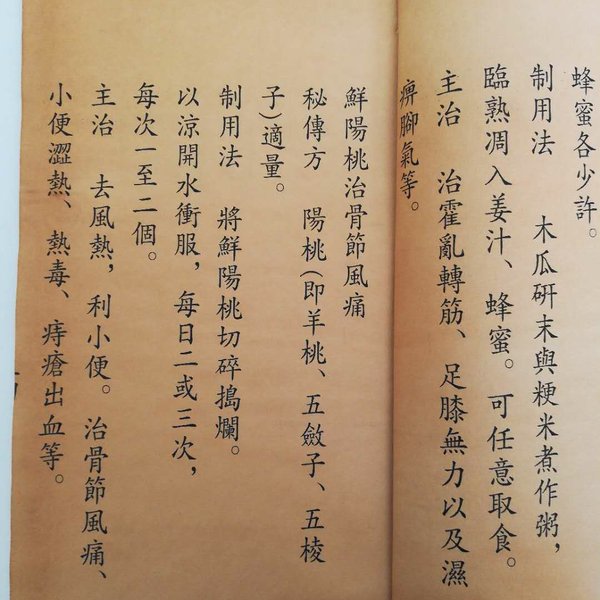 蜂蜜各少許。
制用法　木瓜研末與粳米煮作粥，
臨熟凋入姜汁、蜂蜜。可任意取食。
主治　治霍亂轉筋、足膝無力以及濕
痹腳氣等。
鮮陽桃治骨節風痛
秘傳方　陽桃(即羊桃、五斂子、五棱
子)適量。
制用法　將鮮陽桃切碎搗爛。
以涼開水衝服，每日二或三次，
每次一至二個。
主治　去風熱，利小便。治骨節風痛、
小便澀熱、熱毒、痔瘡出血等。